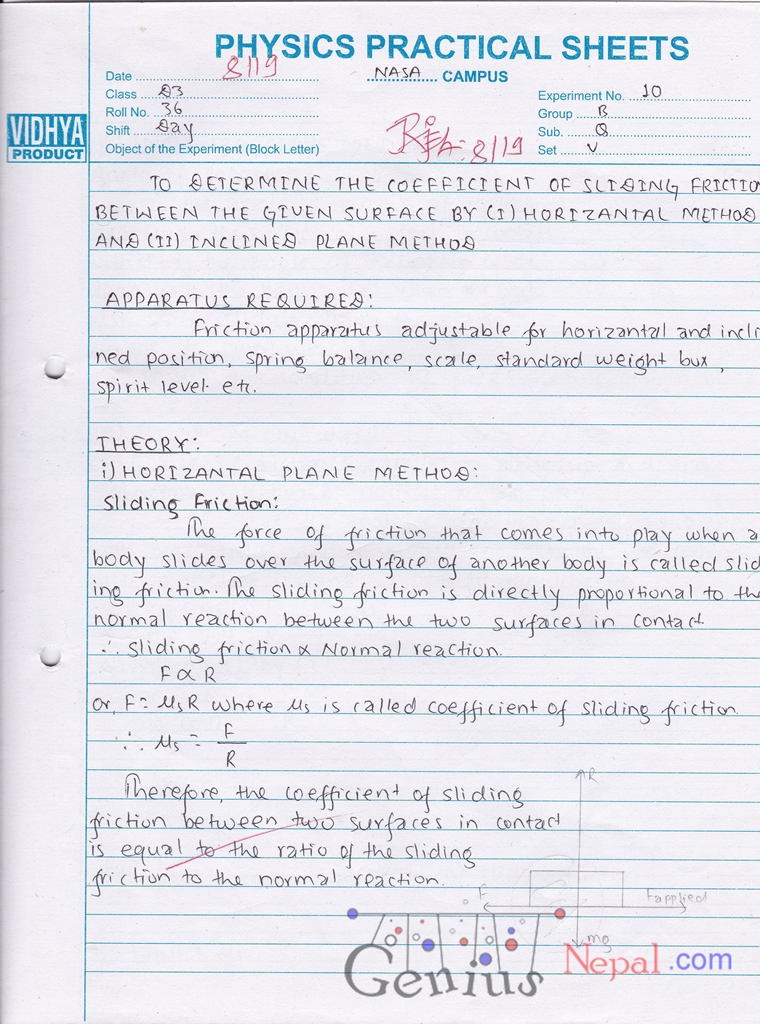 PHYSICS PRACTICAL SHEETS
Date 8/19
NASA CAMPUS
Class D3
Experiment No. 10
Roll No. 36
Group B
Shift Day
Sub. Q
Object of the Experiment (Block Letter)
8/19
Set V
VIDHYA
PRODUCT
TO DETERMINE THE COEFFICIENT OF SLIDING FRICTIO
BETWEEN THE GIVEN SURFACE BY (I) HORIZANTAL METHOD
AND (II) INCLINED PLANE METHOD
APPARATUS REQUIRED:
Friction apparatus adjustable for horizantal and incli
ned position, spring balance, scale, standard weight bux,
spirit level etc.
THEORY:
i) HORIZANTAL PLANE METHOD:
Sliding Friction:
The force of friction that comes into play when a
body slides over the surface of another body is called slid
ing friction. The sliding friction is directly proportional to the
normal reaction between the two surfaces in contact
∴ Sliding friction ∝ Normal reaction.
F ∝ R
or, F = μsR where μs is called coefficient of sliding friction.
∴ μs = F
R
Therefore, the coefficient of sliding
friction between two surfaces in contact
is equal to the ratio of the sliding
friction to the normal reaction.
R
F
Fapplied
mg
Genius Nepal.com